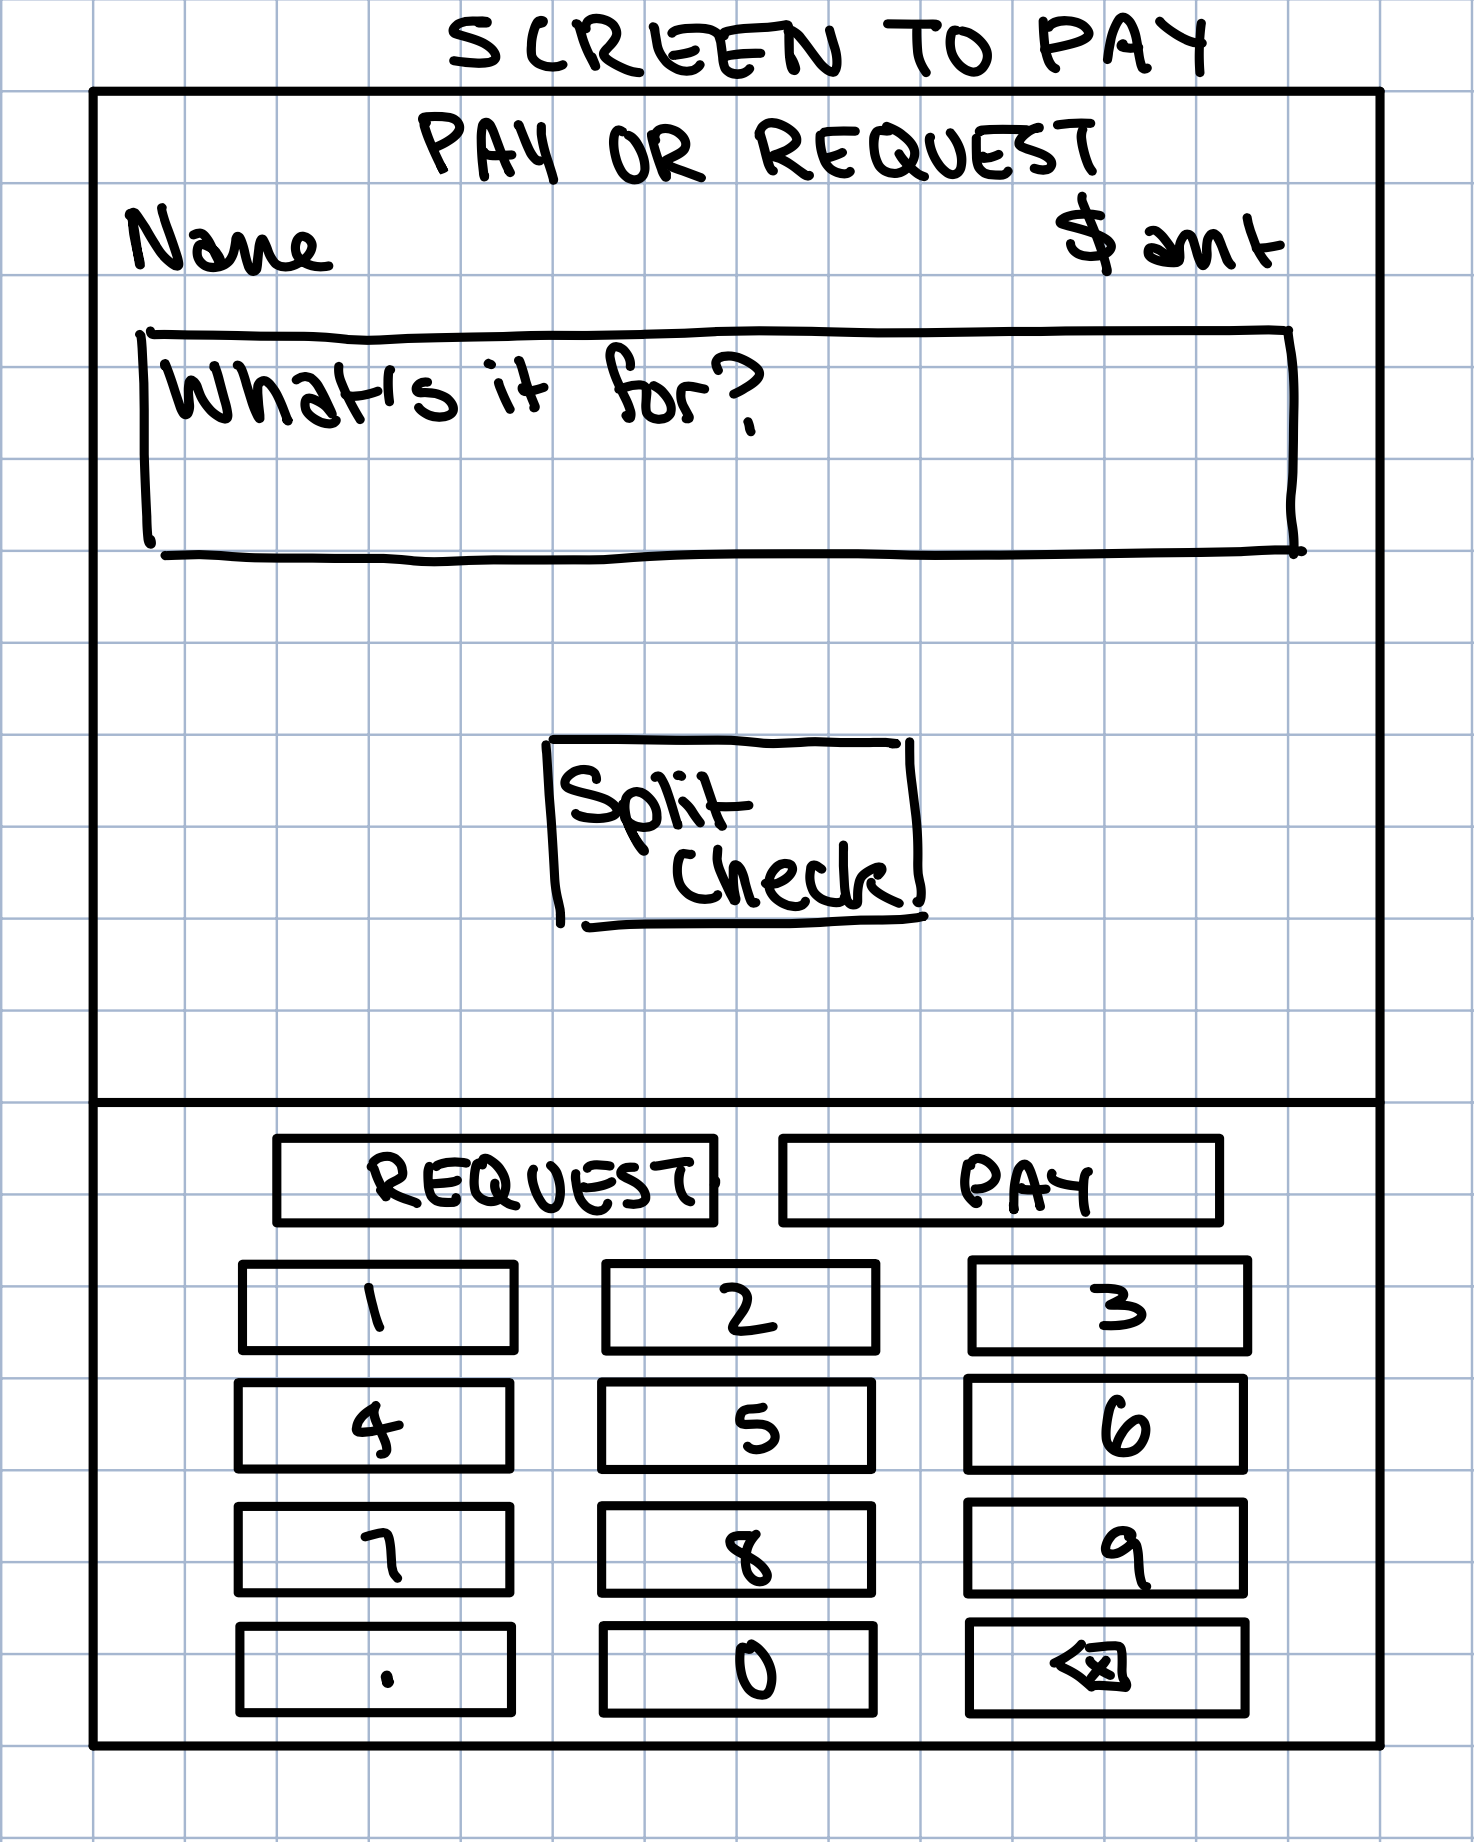 SCREEN TO PAY
PAY OR REQUEST
Name $ amt
What's it for?
Split
Check
REQUEST PAY
1 2 3
4 5 6
7 8 9
. 0